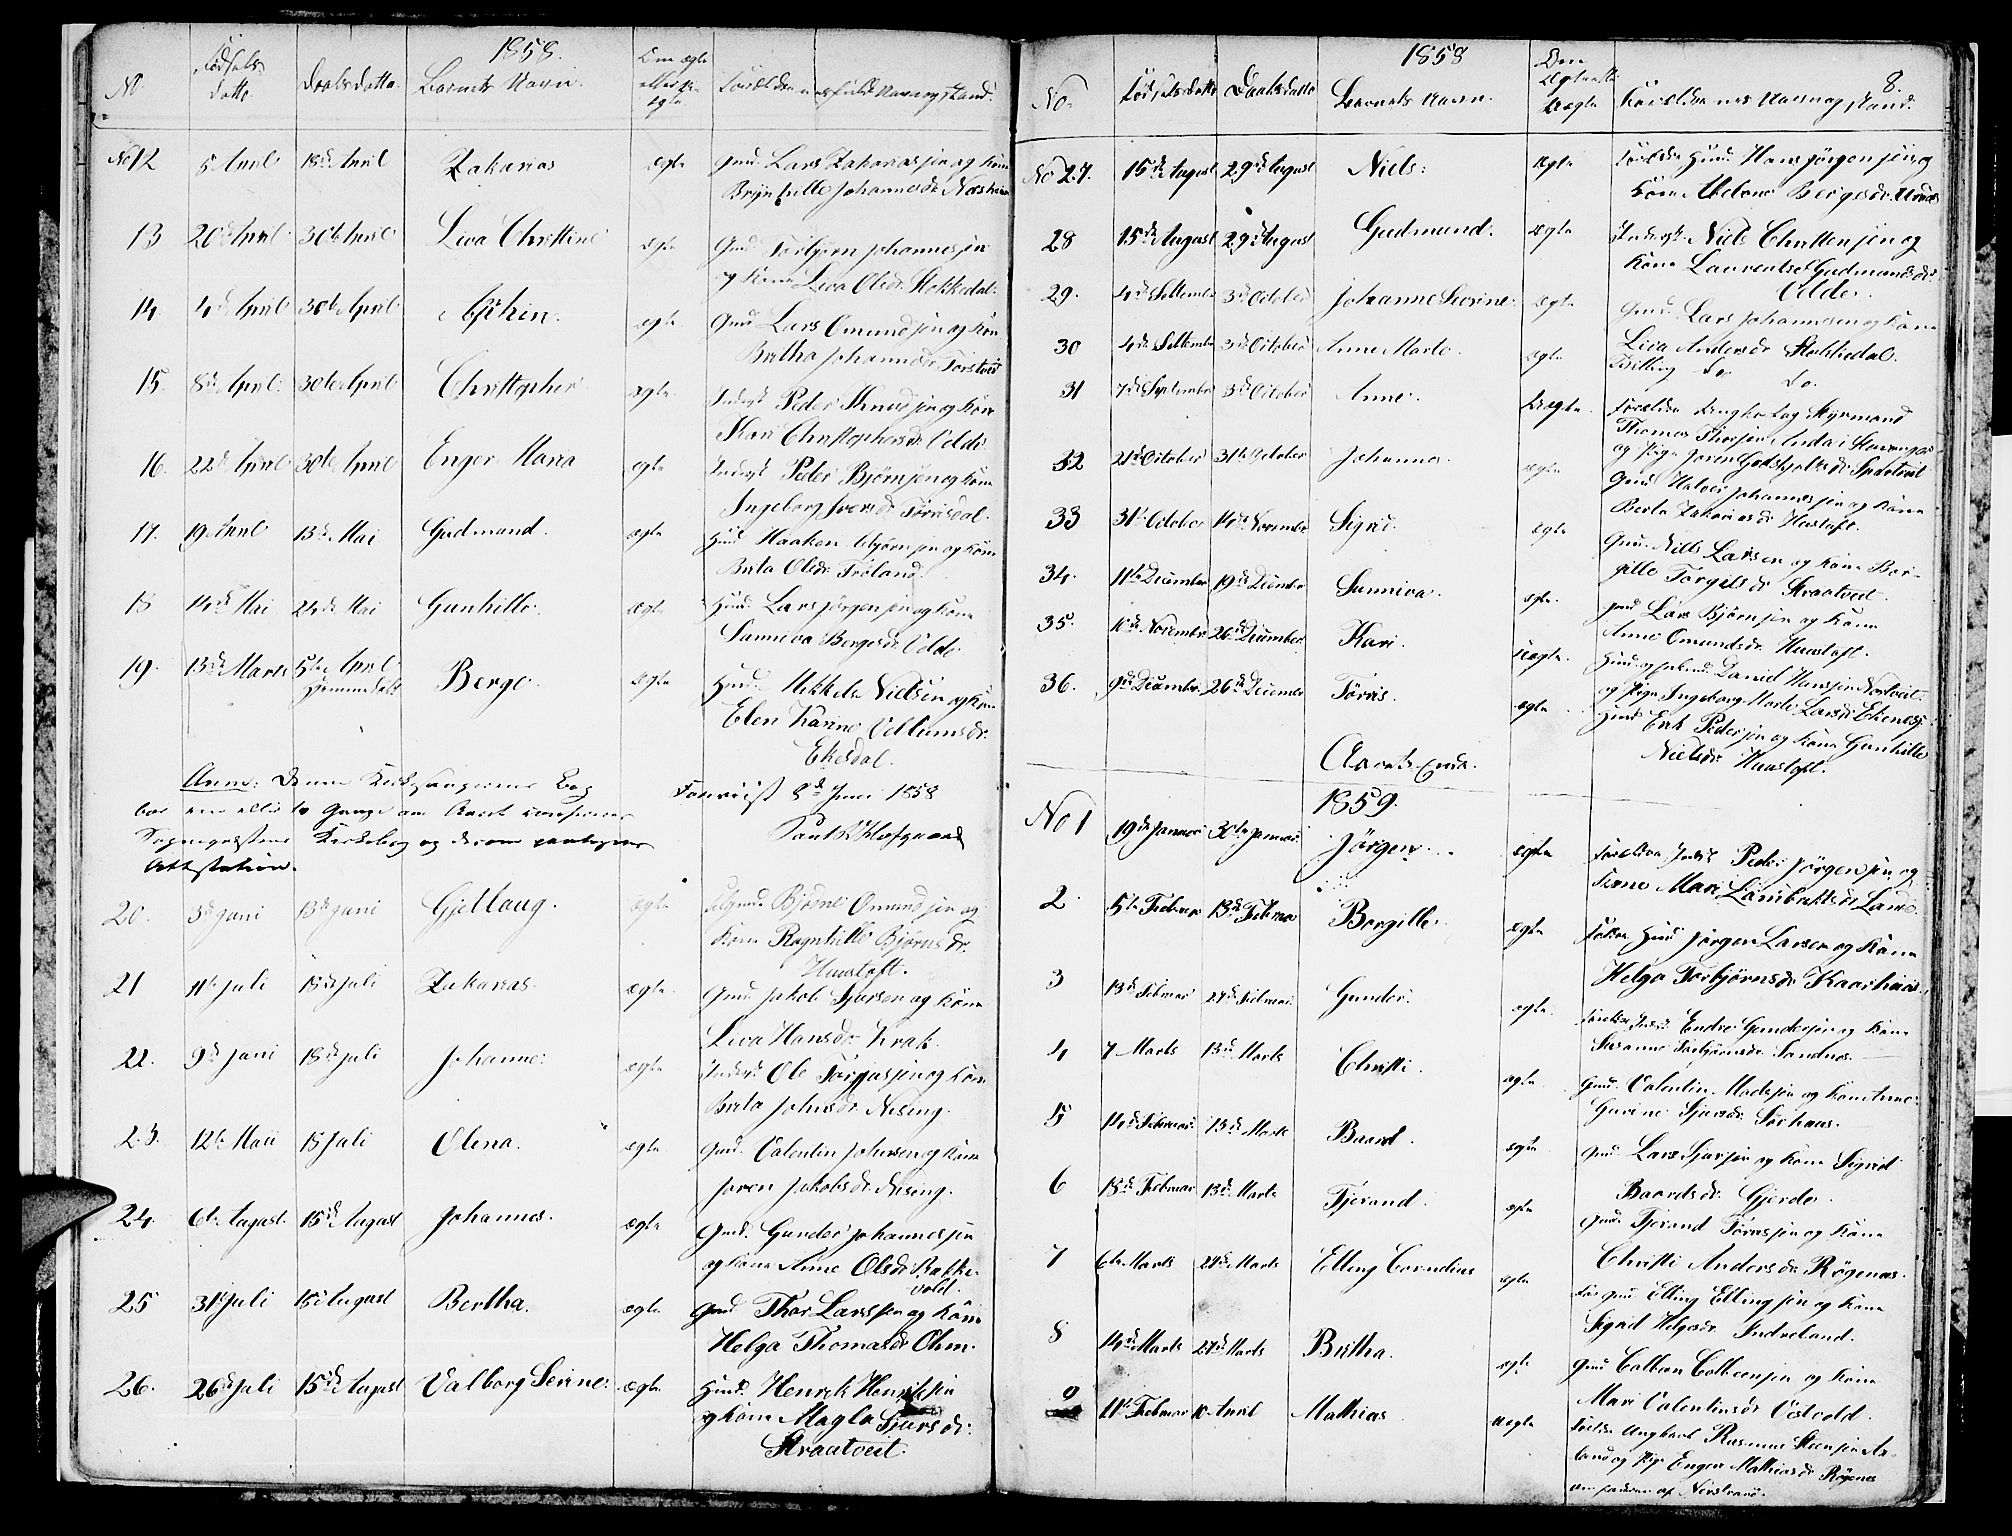 1858.
No. Fødsels datto. Daabsdatto. Barnets Navn. Om ægte eller u-ægte. Forældrenes fulde Navn og Stand.
No 12 5 April 18de April Zakarias ægte Gmd. Lars Zakariasen og Kone
Brynhille Johannesdr. Næsheim
13 20de April 30te April Liva Christine ægte Gmd. Torbjørn Johannesen
og Kone Liva Olsdr. Stokkedal.
14 4de April 30te April ægte Gmd. Lars Omundsen og Kone
Bertha Johannesdr.
15. 8de April 30te April Christopher ægte Inderst Peder Knudsen og Kone
Kari Christophersdr. Odde.
16. 22de April 30te April Enger Maria ægte Inderst Peder Bjørnsen og Kone
Ingeborg Iversdr.
17. 19 April 13de Mai Gudmund. ægte Huusmd. Haaken Asbjørnsen og Kone
Berta Olsdr. Frøland.
18 14de Mai 24de Mai Gunhille. ægte Huusmd. Lars Jørgensen og Kone
Sunniva Bergesdr. Odde.
19. 13de Marts 5te April Hjemmedøbt Berge ægte Huusmd. Mikkel Nielsen og Kone
Elen Karine Villumsdr.
Ekesdal.
Anm: Denne Kirkesangerens Bog
bør een eller to Gange om Aaret
Sognepræstens Kirkebog og derom
Attestation.
Foreviist 8de Juni 1858
20. 3de Juni 13de Juni Gjellaug. ægte Gmd. Bjørne Omundsen og
Kone Ragnhille Bjørnsdr.
Huustoft.
21 11te Juli 18de Juli Zakarias. ægte. Gmd. Jakob Sjursen og Kone
Liva Hansdr. Krak.
22. 9de Juni 18de Juli Johanne: ægte Inderst Ole Torgersen og Kone
Berta Johnsdr. Nising.
23. 12te Mai 18 Juli Olena. ægte Gmd. Valentin Johnsen og Kone
Joren Jakobsdr. Nising.
24. 6te August. 15de August Johannes. ægte Gmd. Gunder Johannesen
og Kone Anne Olsdr. Bakke-
vold.
25 31te Juli 15de August Bertha. ægte Gmd. Thor Larssen og Kone
Helga Thomasdr. Ohm.
26. 26de Juli 15de August Valborg Serine: ægte Huusmd. Henrik Henriksen
og Kone Magla Sjursdr.
Straatveit.
1858
8.
No. Fødselsdatto Daabsdatto Barnets Navn. Om Ægte eller Uægte Forældrenes Navn og Stand.
No 27. 15de August 29de August Niels: ægte Forældre Huusmd. Hans Jørgensen og
Kone Bergesdr.
28 15de August 29de August Gudmund. ægte Inderst Niels Christensen og
Kone Laurentse Gudmundsdr.
Odde.
29. 4de Septembr 3de October Johanne Serine. ægte Gmd. Lars Johannesen og Kone
Liva Andersdr. Stokkedal.
30 4de Septembr 3de October Anne Marte. ægte Tvilling do do.
31 7de September 3de October Anne. Uægte. Forældre Ungkarl og Styrmand
Thomas Thorsen Anda i Stavanger
og Pige Joren Gotskalksdr.
32 21de October 31te October Johannes. ægte Gmd. Halvor Johannesen og Kone
Berta Zakariasdr. Huustoft.
33 31te October 14de November Sigrid. ægte Gmd. Niels Larsen og Kone Bor-
gille Torgilsdr. Straatveit.
34. 11te December 19de December Sunniva. ægte. Gmd. Lars Bjørnsen og Kone
Anne Omundsdr. Huustoft.
35. 10de November 26de December Kari. Uægte. Daniel Hansen
og Pige Ingeborg Marte Larsdr. Ekenes
36. 9de December. 26de December Torris. ægte Huusmd. Erik Pedersen og Kone Gunhille
Nielsdr. Huustoft.
Aarets Ende.
1859.
No 1 19de Januari 30te Januari Jørgen. ægte Forældre Inderst Peder Jørgensen og
Kone Mari Lambertsdr. Lande.
2. 5te Februar 13de Februar Borgille. ægte Forældre Huusmd Jørgen Larsen og Kone
Helga Torbjørnsdr. Kaarhuus.
3 13de Februar 27de Februar Gunder. ægte. Forældre Inderst Endre Gundersen og Kone
Susanne Torbjørnsdr. Sandnes.
4 7 Marts 13de Marts Christi. ægte Gmd. Valentin Madssen og Kone Anne
Gurine Sjursdr. Sørhuus.
5 14de Februar. 13de Marts Baard. ægte Gmd. Lars Sjursen og Kone Sigrid
Baardsdr. Gjerde.
6 18de Februar 13de Marts Tjerand. ægte Gmd. Tjerand Torrissen og Kone
Christi Andersdr. Røgenes.
7 6te Marts 27de Marts Elling Cornelius ægte For. Gmd. Elling Ellingsen og Kone
Sigrid Helgesdr. Indreland.
8 14de Marts 27de Marts Bertha. ægte Gmd Colben Colbensen og Kone
Mari Valentinsdr. Østvold.
9 11te Februar 10 April Mathias uægte Forældre Ungkarl Rasmus Steensen Aa-
land og Pige Enger Mathiasdr. Røgenes